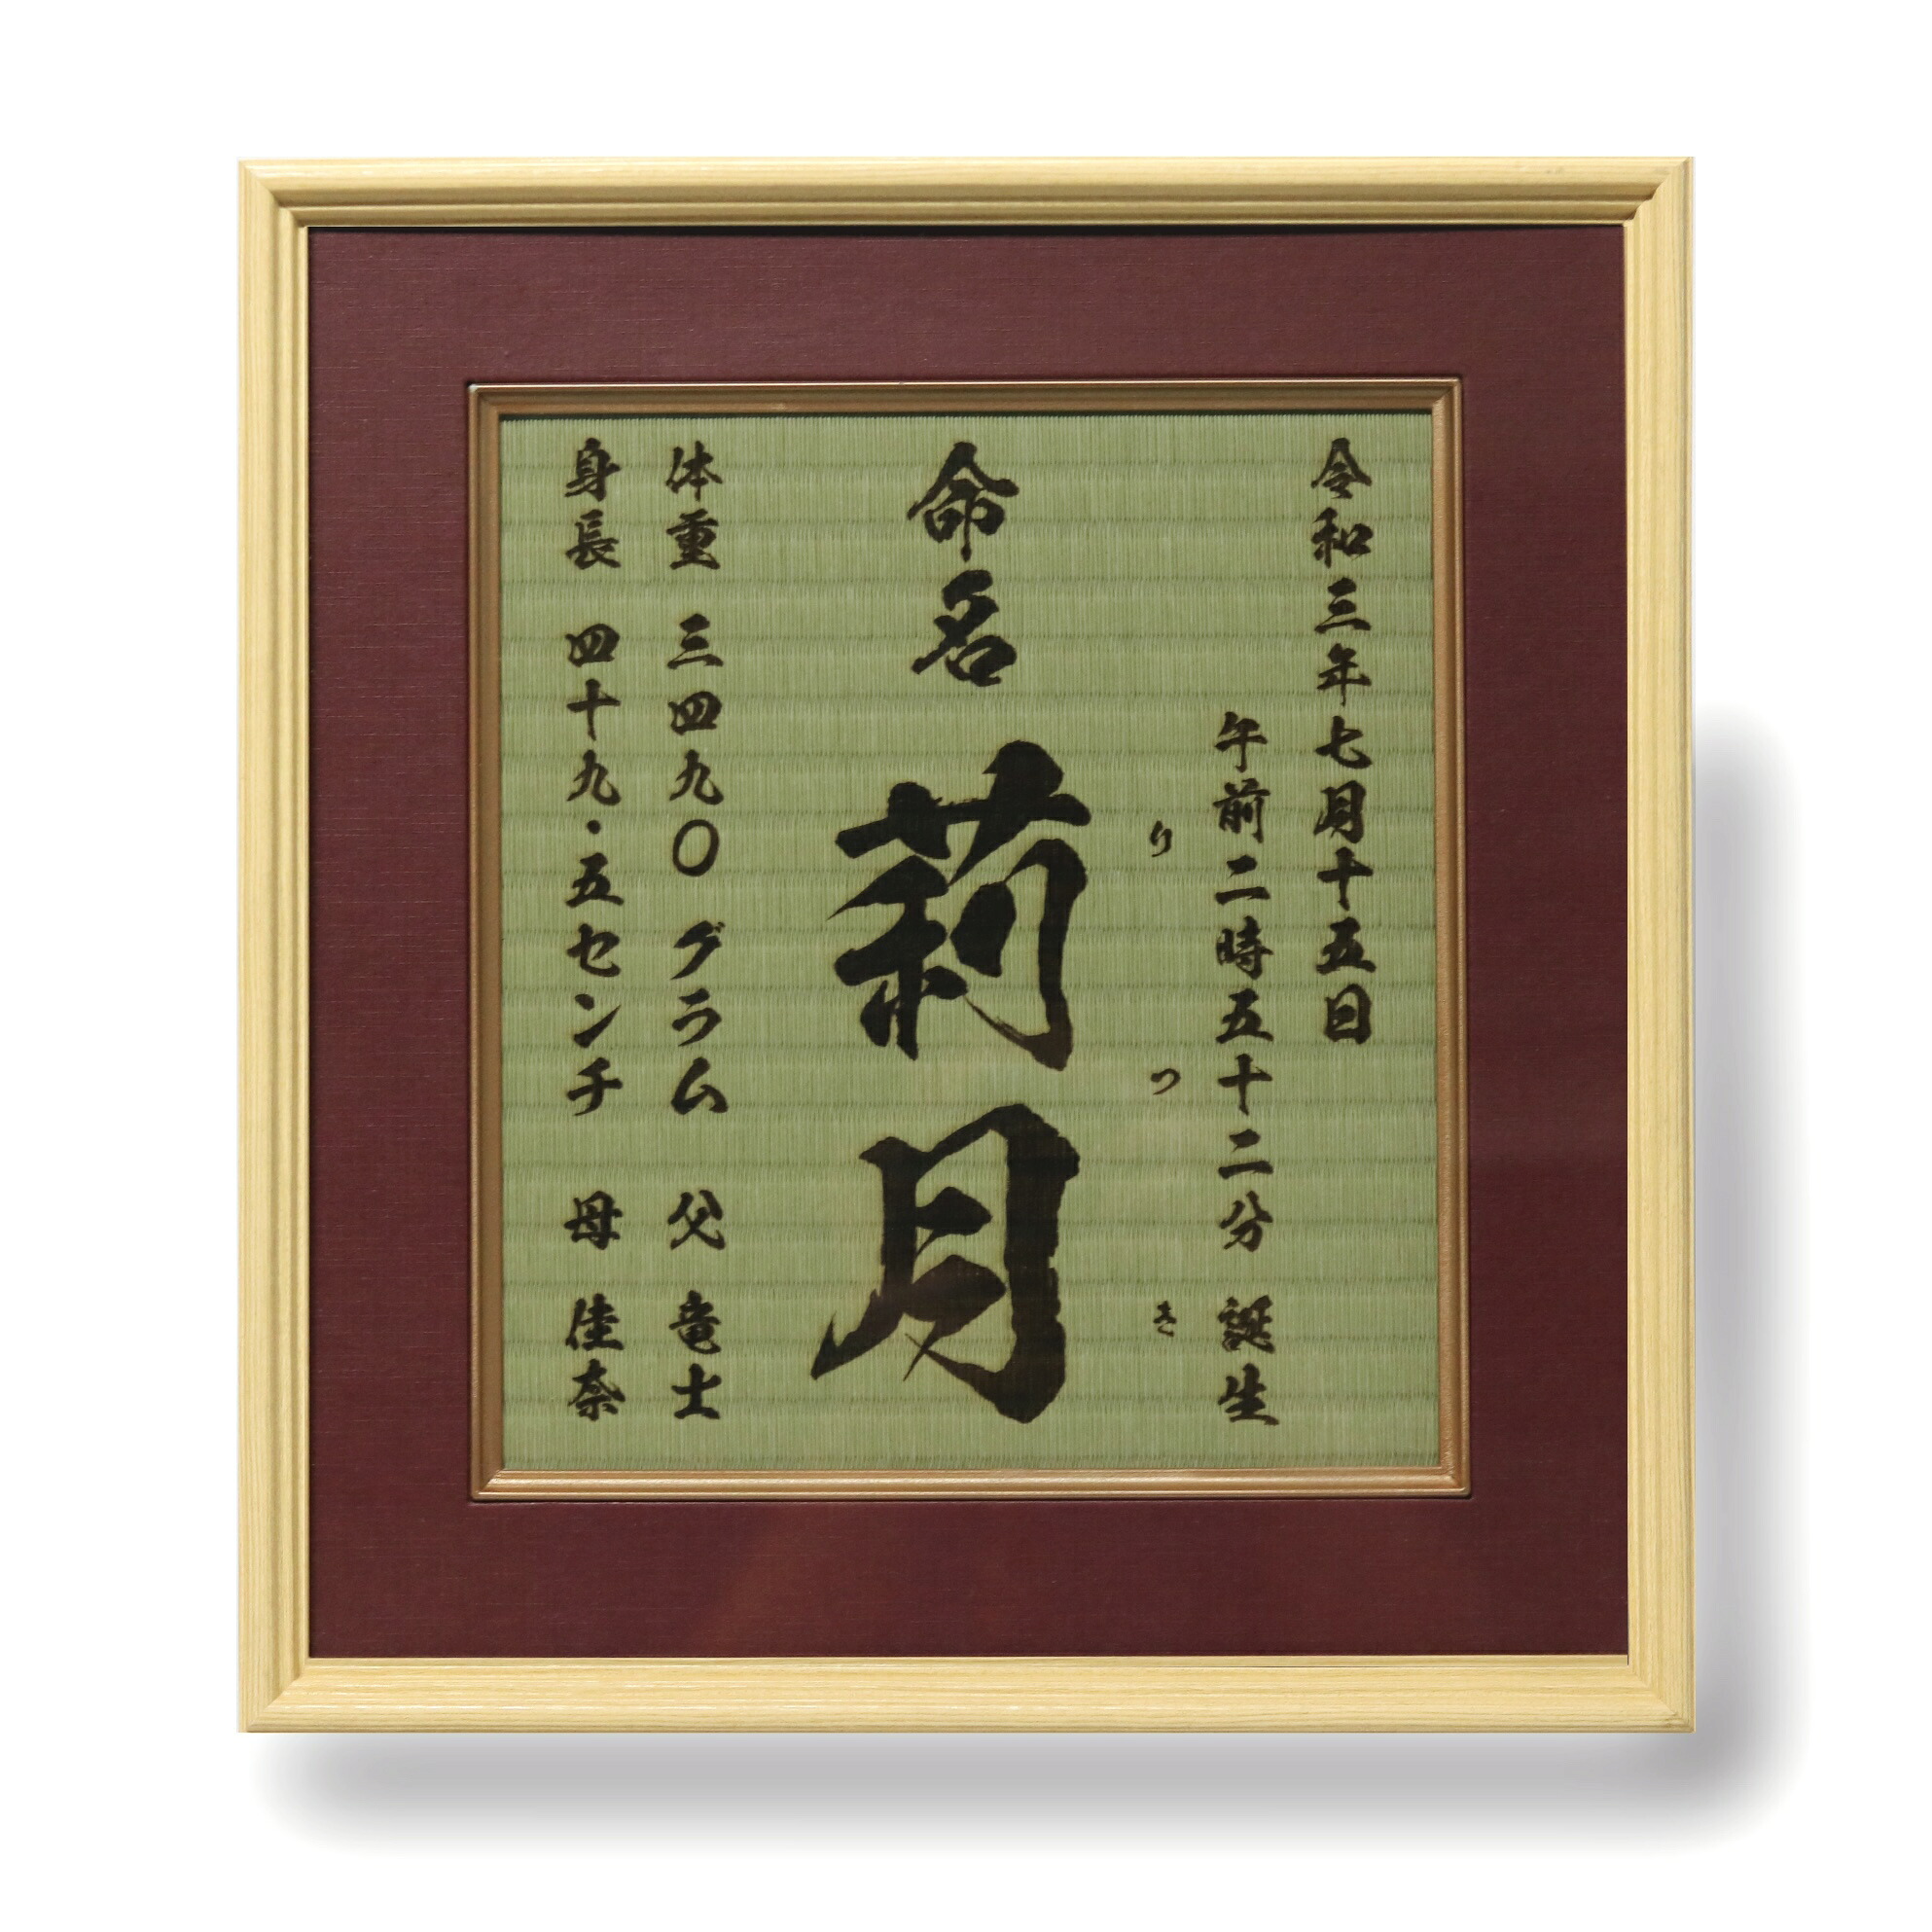 令和三年七月十五日
午前二時五十二分 誕生
りつき
命名 莉月
体重 三四九〇 グラム 父 竜士
身長 四十九・五センチ 母 佳奈